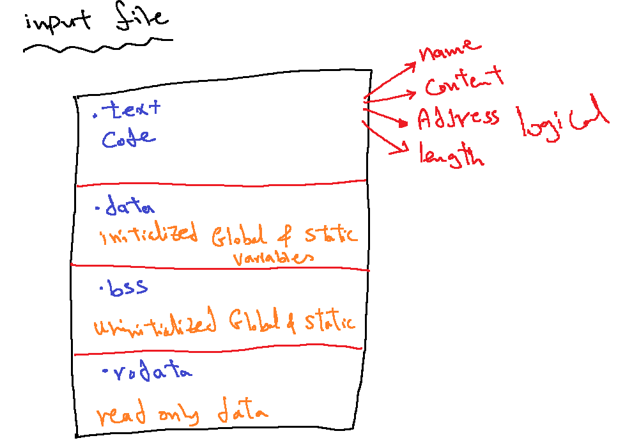 input file
name
content
Address logical
length
.text
Code
.data
initialized Global & static
variables
.bss
Uninitialized Global & static
.rodata
read only data